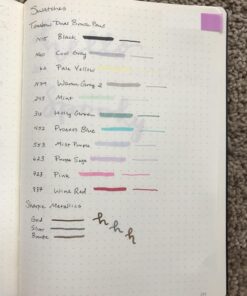 Swatches
Tombow Dual Brush Pens
N15 Black
N60 Cool Gray
62 Pale Yellow
N79 Warm Gray 2
243 Mint
312 Holly Green
452 Process Blue
553 Mist Purple
623 Purple Sage
723 Pink
837 Wine Red
Sharpie Metallics
Gold
Silver
Bronze
h h h